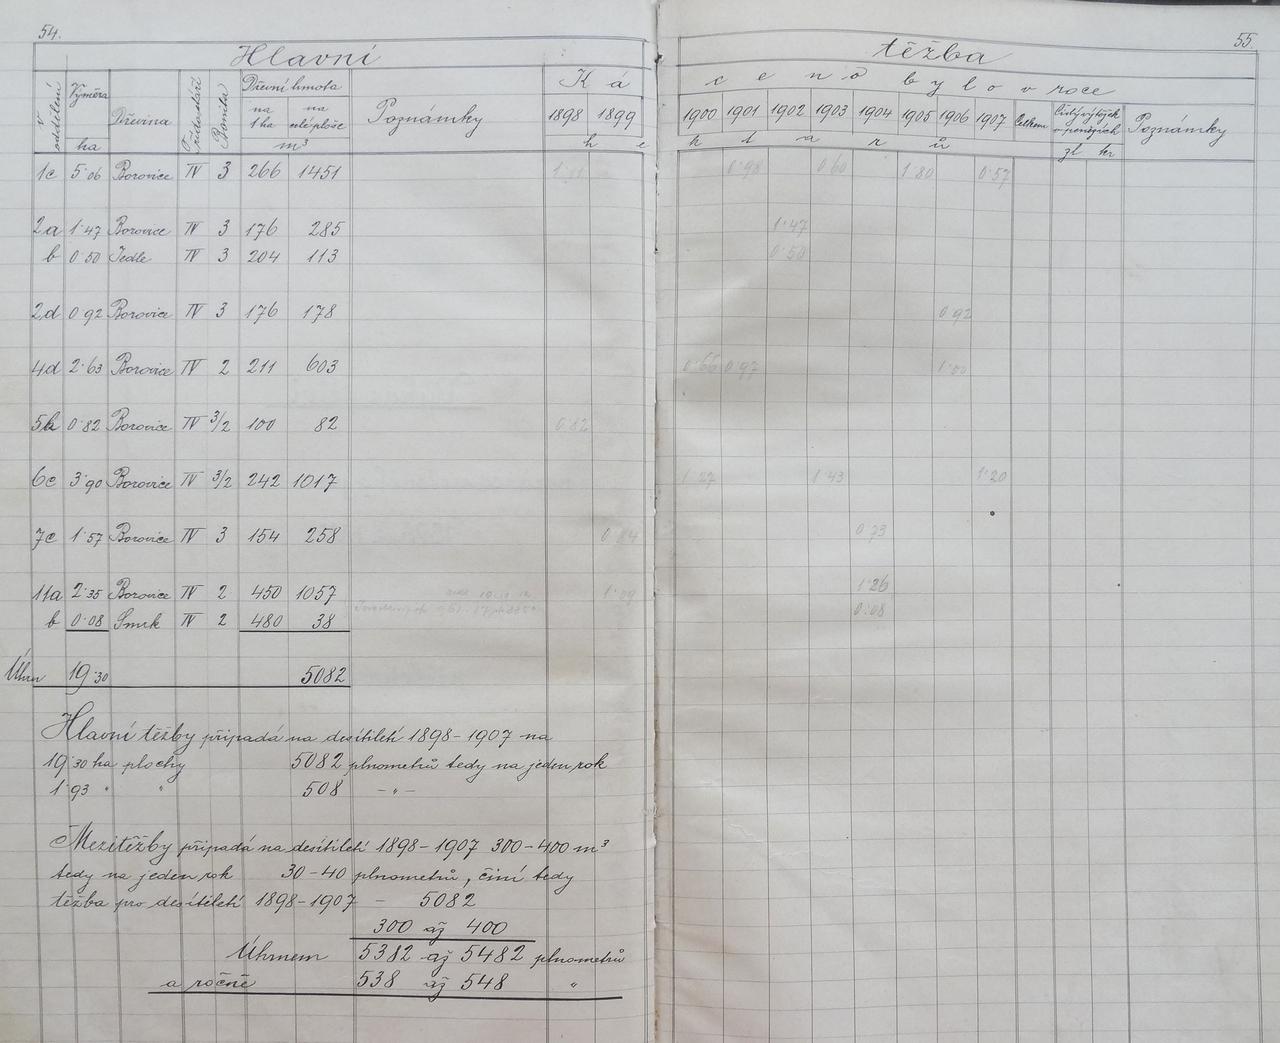 54.
55.
Hlavní těžba
v oddělení Výměra Dřevina Bonita Dřevní hmota Poznámky K á c e n o b y l o v roce Poznámky
na 1 ha na celé ploše 1898 1899 1900 1901 1902 1903 1904 1905 1906 1907 Celkem Čistý výtěžek v penězích
ha m³ h e k t a r ů zl kr
1c 5·06 Borovice IV 3 266 1451 1·11 0·98 0·60 1·80 0·57
2a 1·47 Borovice IV 3 176 285 1·47
b 0·50 Jedle IV 3 204 113 0·50
2d 0·92 Borovice IV 3 176 178 0·92
4d 2·63 Borovice IV 2 211 603 0·66 0·97 1·00
5b 0·82 Borovice IV 3/2 100 82 0·82
6c 3·90 Borovice IV 3/2 242 1017 1·27 1·43 1·20
7c 1·57 Borovice IV 3 154 258 0·84 0·73
11a 2·35 Borovice IV 2 450 1057 1·09 1·26
b 0·08 Smrk IV 2 480 38 0·08
Úhrn 19·30 5082
Hlavní těžby připadá na desítiletí 1898–1907 na
19·30 ha plochy 5082 plnometrů tedy na jeden rok
1·93 " " 508 –"–
Mezitěžby připadá na desítiletí 1898–1907 300–400 m³
tedy na jeden rok 30–40 plnometrů, činí tedy
těžba pro desítiletí 1898–1907 – 5082
300 až 400
Úhrnem 5382 až 5482 plnometrů
a ročně 538 až 548 "